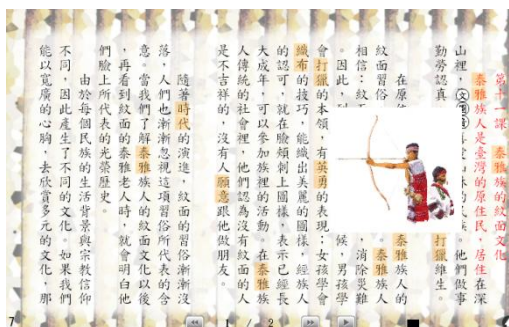 第十一課 泰雅族人的紋面文化
泰雅族人是臺灣的原住民，居住在深
山裡，山林的民族。他們做事
勤勞認真 打獵維生。
在原 泰雅族人的
紋面習俗 泰雅族人
相信：紋 消除災難
。因此， 候，男孩學
會打獵的本領，有英勇的表現；女孩學會
織布的技巧，能織出美麗的圖樣，經族人
的認可，就在臉頰刺上圖樣，表示已經長
大成年，可以參加族裡的活動。在泰雅族
人傳統的社會裡，他們認為沒有紋面的人
是不吉祥的，沒有人願意跟他做朋友。
隨著時代的演進，紋面的習俗漸漸沒
落，人們也漸漸忽視這項習俗所代表的含
意。當我們了解泰雅族人的紋面文化以後
，再看到紋面的泰雅老人時，就會明白他
們臉上所代表的光榮歷史。
由於每個民族的生活背景與宗教信仰
不同，因此產生了不同的文化。如果我們
能以寬廣的心胸，去欣賞多元的文化，那
7
1 / 2